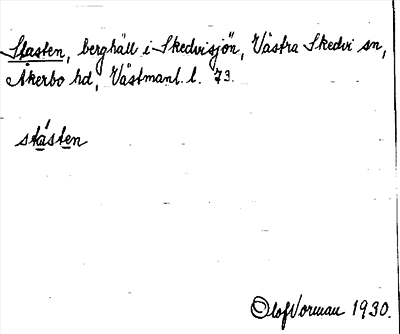 Stasten, berghäll i Skedvisjön, Västra Skedvi sn,
Åkerbo hd, Västmanl. l. 73.
stásten
Olof Vorman 1930.